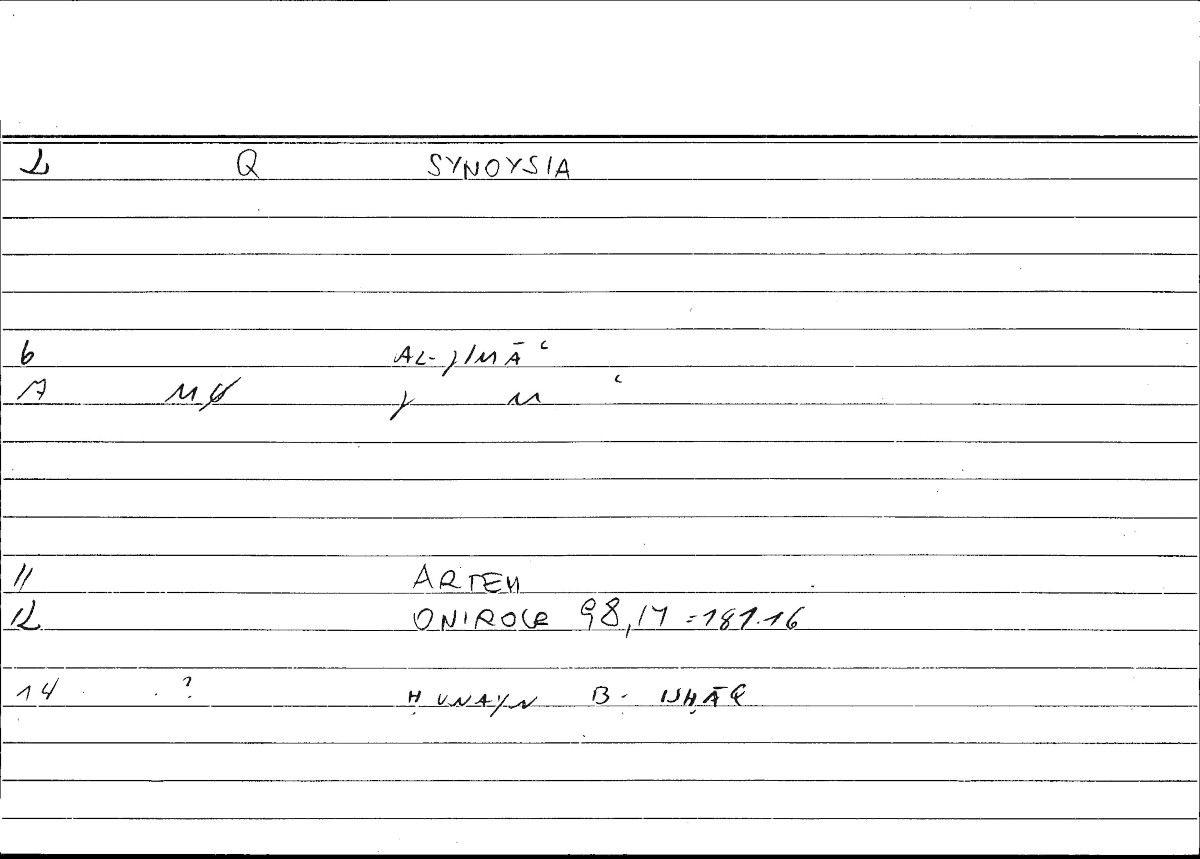 2 Q SYNOYSIA
6 AL-JIMĀʿ
7 J M ʿ
11 ARTEM
12 ONIROCR 98,17 = 181.16
14 ? ḤUNAYN B. ISḤĀQ